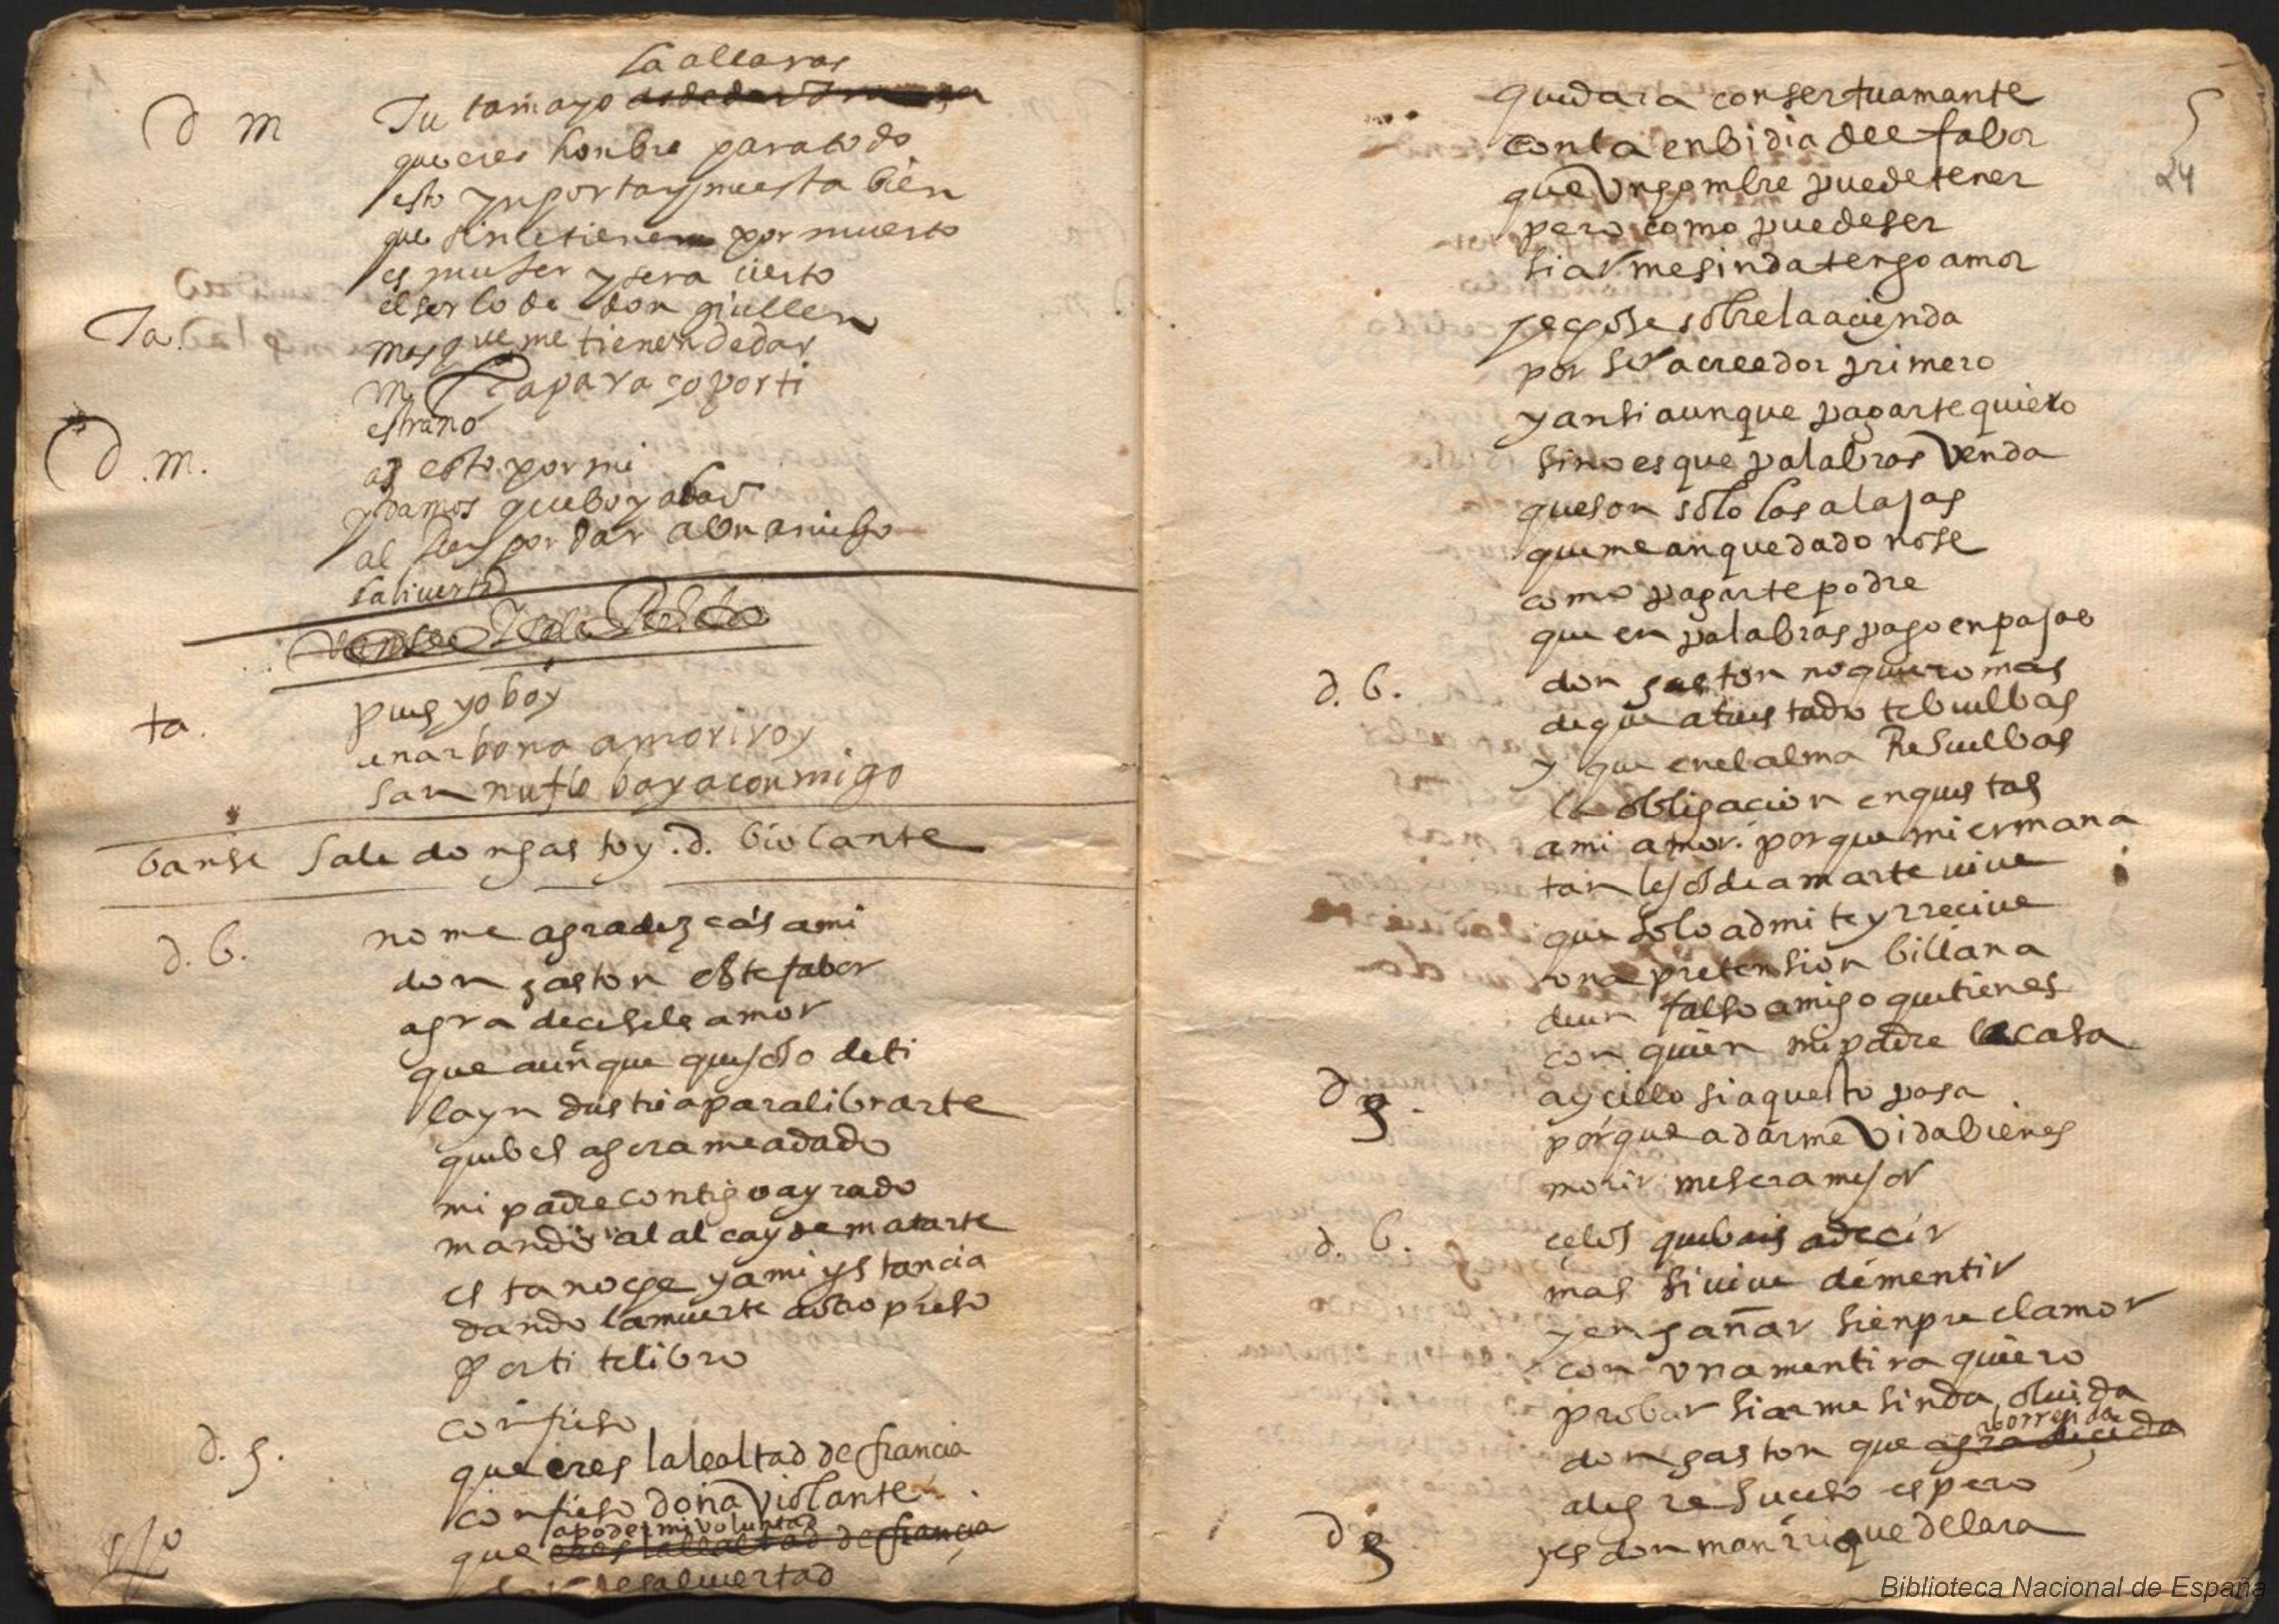 la allaras
d m Tu tamayo
que eres honbre para todo
esto ynporta y muestra bien
que si le tienen por muerto
es muger y sera cierto
el ser lo de don guillen
Ta. mas que me tienen de dar
capara so por ti
estraño
d. m. as esto por mi
y bamos que boy a
al Rey por dar a un amigo
la livertad
ta. pues yo boy
en arbona amorivoy
san nuflo baya conmigo
banse Sale don gaston y .d. biolante
d. b. no me agradezcas a mi
don gaston este fabor
agradeceselo amor
que aunque quejoso de ti
la yndustria para librarte
que bes agora me a dado
mi padre contigo ayrado
mando al alcayde matarte
esta noche y a mi ystancia
dando la muerte a otro preso
por ti te libro
d. g. confieso
que eres la lealtad de francia
confieso doña violante
apoder mi voluntad
que eres la lealtad de francia
de sa livertad
5
24
quedara con ser tu amante
con la enbidia del fabor
que un honbre puede tener
pero como puede ser
si a armesinda tengo amor
y echose sobre la acienda
por ser acreedor primero
y ansi aunque pagarte quiero
sino es que palabras venda
que son solo las alajas
que me an quedado no se
como pagarte podre
que en palabras pago en pajas
d. b. don gaston no quiero mas
de que a tu estado te buelbas
y que en el alma Resuelbas
la obligacion en que estas
a mi amor. porque mi ermana
tan lejos de amarte vive
que solo admite y rrecive
una pretension billana
de un falso amigo que tienes
con quien mi padre la casa
d g. ay cielo si aquesto pasa
porque a darme vida bienes
morir me sera mejor
d. b. celos que bais a decir
mas si vive de mentir
y engañar sienpre el amor
con una mentira quiero
probar si armesinda olvida
aborrecida
don gaston que agradecida
alegre suceso espero
d g y es don manrrique de lara
Biblioteca Nacional de España